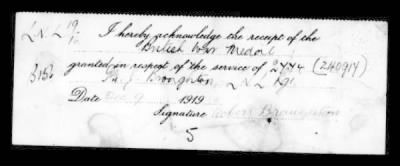 L.N.L 19/12
I hereby acknowledge the receipt of the
British War Medal
granted in respect of the service of 2444 (240917)
Broughton, L.N.L. Rgt.
Date Dec 9 1919
Signature Robert Broughton
5